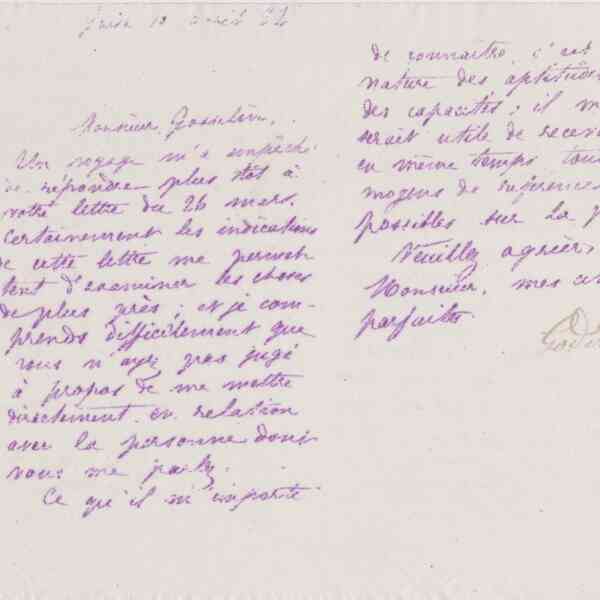 Guise 10 avril 82
Monsieur Gosselin,
Un voyage m'a empêché
de répondre plus tôt à
votre lettre du 26 mars.
Certainement les indications
de cette lettre me permet
tent d'examiner les choses
de plus près ; et je com-
prends difficilement que
vous n'ayez pas jugé
à propos de me mettre
directement en relation
avec la personne dont
vous me parlez.
Ce qu'il m'importe
de connaître, c'est
nature des aptitudes
des capacités ; il m
serait utile de recev
en même temps tou
moyens de références
possibles sur la p
Veuillez agréer,
Monsieur, mes
parfaites
Godin